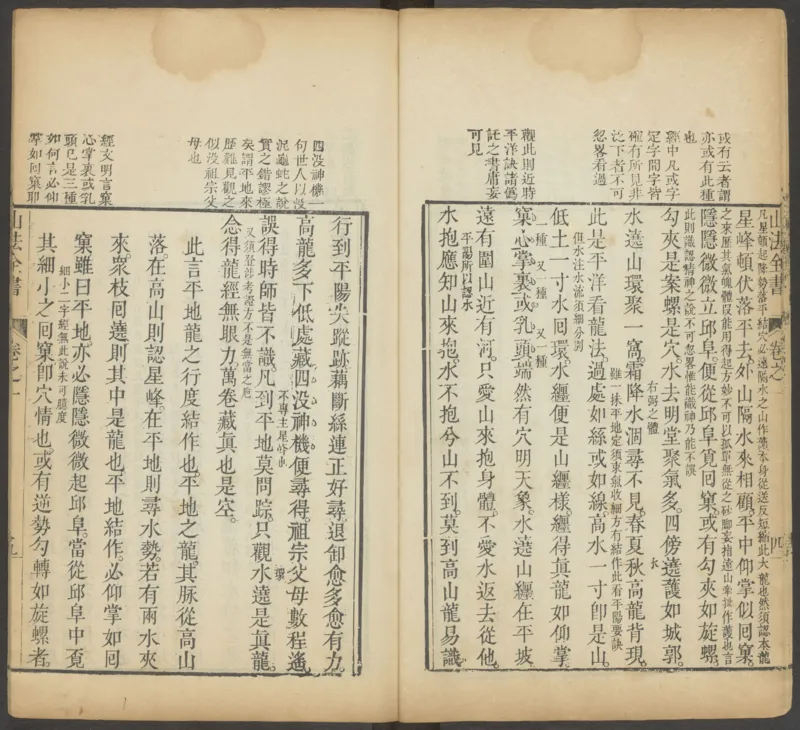 或有云者謂
亦或有此種
也
經中凡或字
定字間字皆
確有所見非
泛下者不可
忽畧看過
觀此則近時
平洋訣諸偽
託之書庸妄
可見
山法全書
卷之一
四
凡星頓起降勢落平結穴必遠隔水之山作護本身從送反短縮此大龍也然須認本龍
之來歷其氣魄體段能用得起方妙不可以孤單無從之砂脚妄指遠山牽拙作護也言
星峰頓伏落平去外山隔水來相顧平中仰掌似回窠
隱隱微微立邱阜便從邱阜覓回窠或有勾夾如旋螺
此則識認精神之說不可忽畧惟能識神乃能不誤
勾夾是案螺是穴水去明堂聚氣多四傍遶護如城郭
水遶山環聚一窩霜降水涸尋不見春夏秋高龍背現
右弼之體
水
雖一抹平地定須束氣收細方有結作此看平陽要訣
此是平洋看龍法過處如絲或如線高水一寸卽是山
低土一寸水回環水纏便是山纏樣纏得眞龍如仰掌
但水注水流須細分別
窠心掌裏或乳頭端然有穴明天象水遶山纏在平坡
一種 又一種 又一種
遠有圍山近有河只愛山來抱身體不愛水返去從他
水抱應知山來抱水不抱兮山不到莫到高山龍易識
平陽所以認水
四没神機一
句世人以没
泥龜蛇之說
實之錯謬極
矣謂平地來
歷難見觀之
似没祖宗父
母也
經文明言窠
心掌裏或乳
頭已是三種
如何言必仰
掌如回窠耶
行到平陽失蹤跡藕斷絲連正好尋退卸愈多愈有力
高龍多下低處藏四没神機便尋得祖宗父母數程遙
誤得時師皆不識凡到平地莫問踪只觀水遶是眞龍
不專主星峰也
環
又須登涉考證方不是無當之巵
念得龍經無眼力萬卷藏眞也是空
此言平地龍之行度結作也平地之龍其脉從高山
落在高山則認星峰在平地則尋水勢若有兩水夾
來衆枝回遶則其中是龍也平地結作必仰掌如回
窠雖曰平地亦必隱隱微微起邱阜當從邱阜中覓
細小二字經無此說未可臆度
其細小之回窠卽穴情也或有逆勢勾轉如旋螺者
山法全書
卷之一